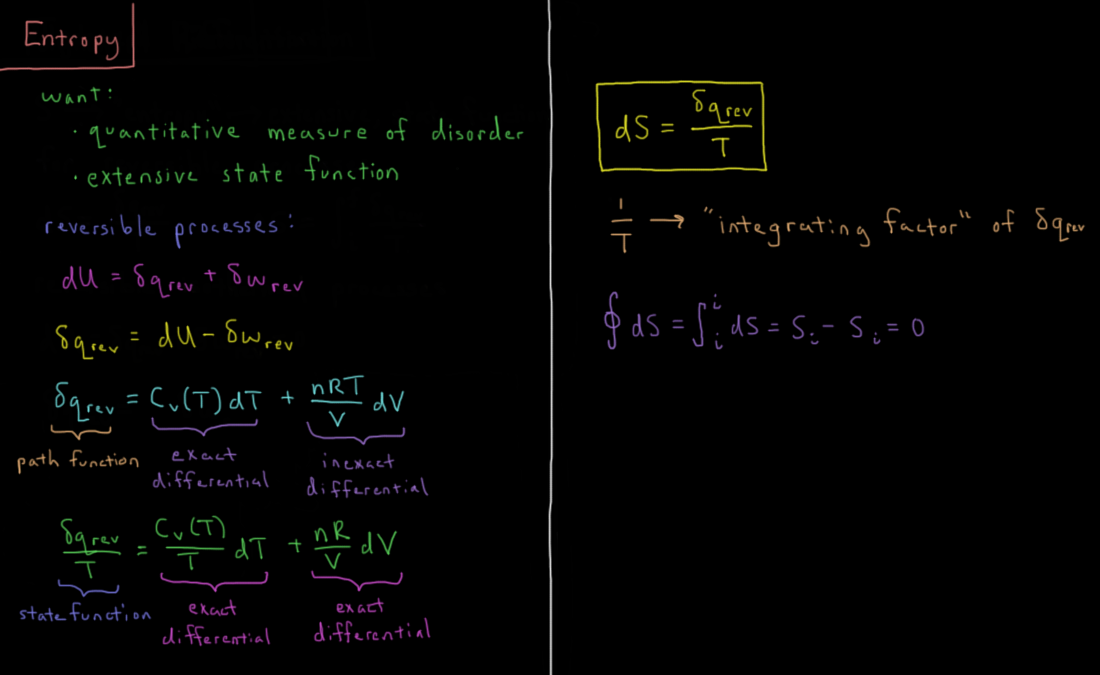 Entropy
want:
· quantitative measure of disorder
· extensive state function
reversible processes:
dU = δq_rev + δw_rev
δq_rev = dU − δw_rev
δq_rev = C_v(T) dT + nRT/V dV
path function
exact differential
inexact differential
δq_rev/T = C_v(T)/T dT + nR/V dV
state function
exact differential
exact differential
dS = δq_rev/T
1/T → "integrating factor" of δq_rev
∮ dS = ∫_i^i dS = S_i − S_i = 0